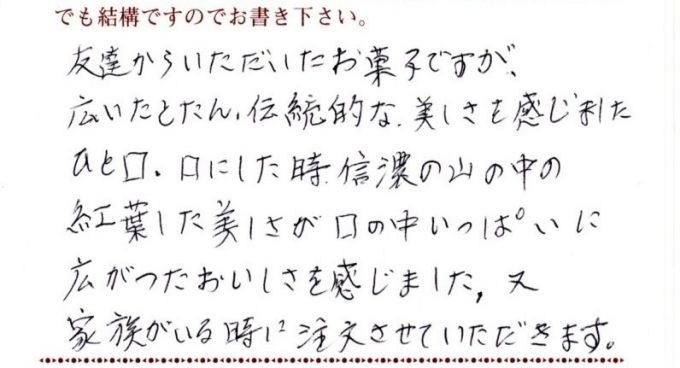 でも結構ですのでお書き下さい。
友達からいただいたお菓子ですが、
広いたとたん、伝統的な、美しさを感じました
ひと口、口にした時、信濃の山の中の
紅葉した美しさが口の中いっぱいに
広がつたおいしさを感じました、又
家族がいる時に注文させていただきます。